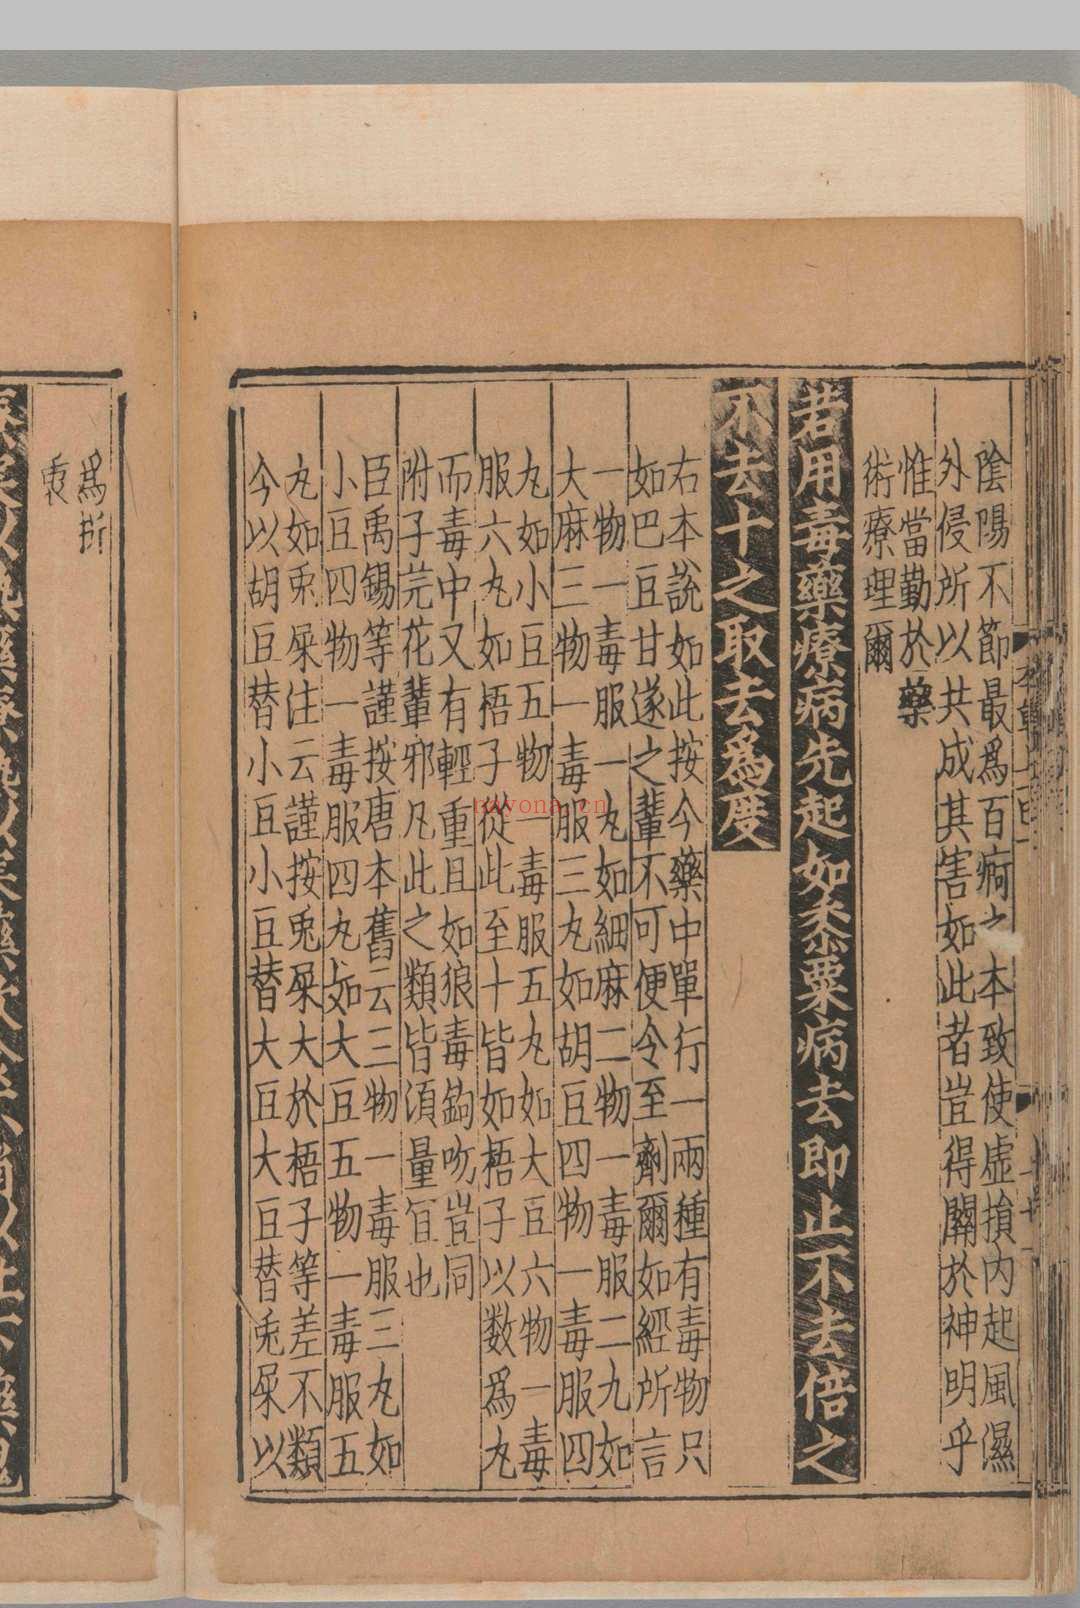 陰陽不節最爲百痾之本致使虛損內起風濕
外侵所以共成其害如此者豈得關於神明乎
惟當勤於藥
術療理爾
若用毒藥療病先起如黍粟病去即止不去倍之
不去十之取去爲度
右本說如此按今藥中單行一兩種有毒物只
如巴豆甘遂之輩不可便令至劑爾如經所言
一物一毒服一丸如細麻二物一毒服二丸如
大麻三物一毒服三丸如胡豆四物一毒服四
丸如小豆五物一毒服五丸如大豆六物一毒
服六丸如梧子從此至十皆如梧子以數爲丸
而毒中又有輕重且如狼毒鉤吻豈同
附子芫花輩邪凡此之類皆須量宜也
臣禹錫等謹按唐本舊云三物一毒服三丸如
小豆四物一毒服四丸如大豆五物一毒服五
丸如兎屎注云謹按兎屎大於梧子等差不類
今以胡豆替小豆小豆替大豆大豆替兎屎以
爲折
衷
nayona.cn